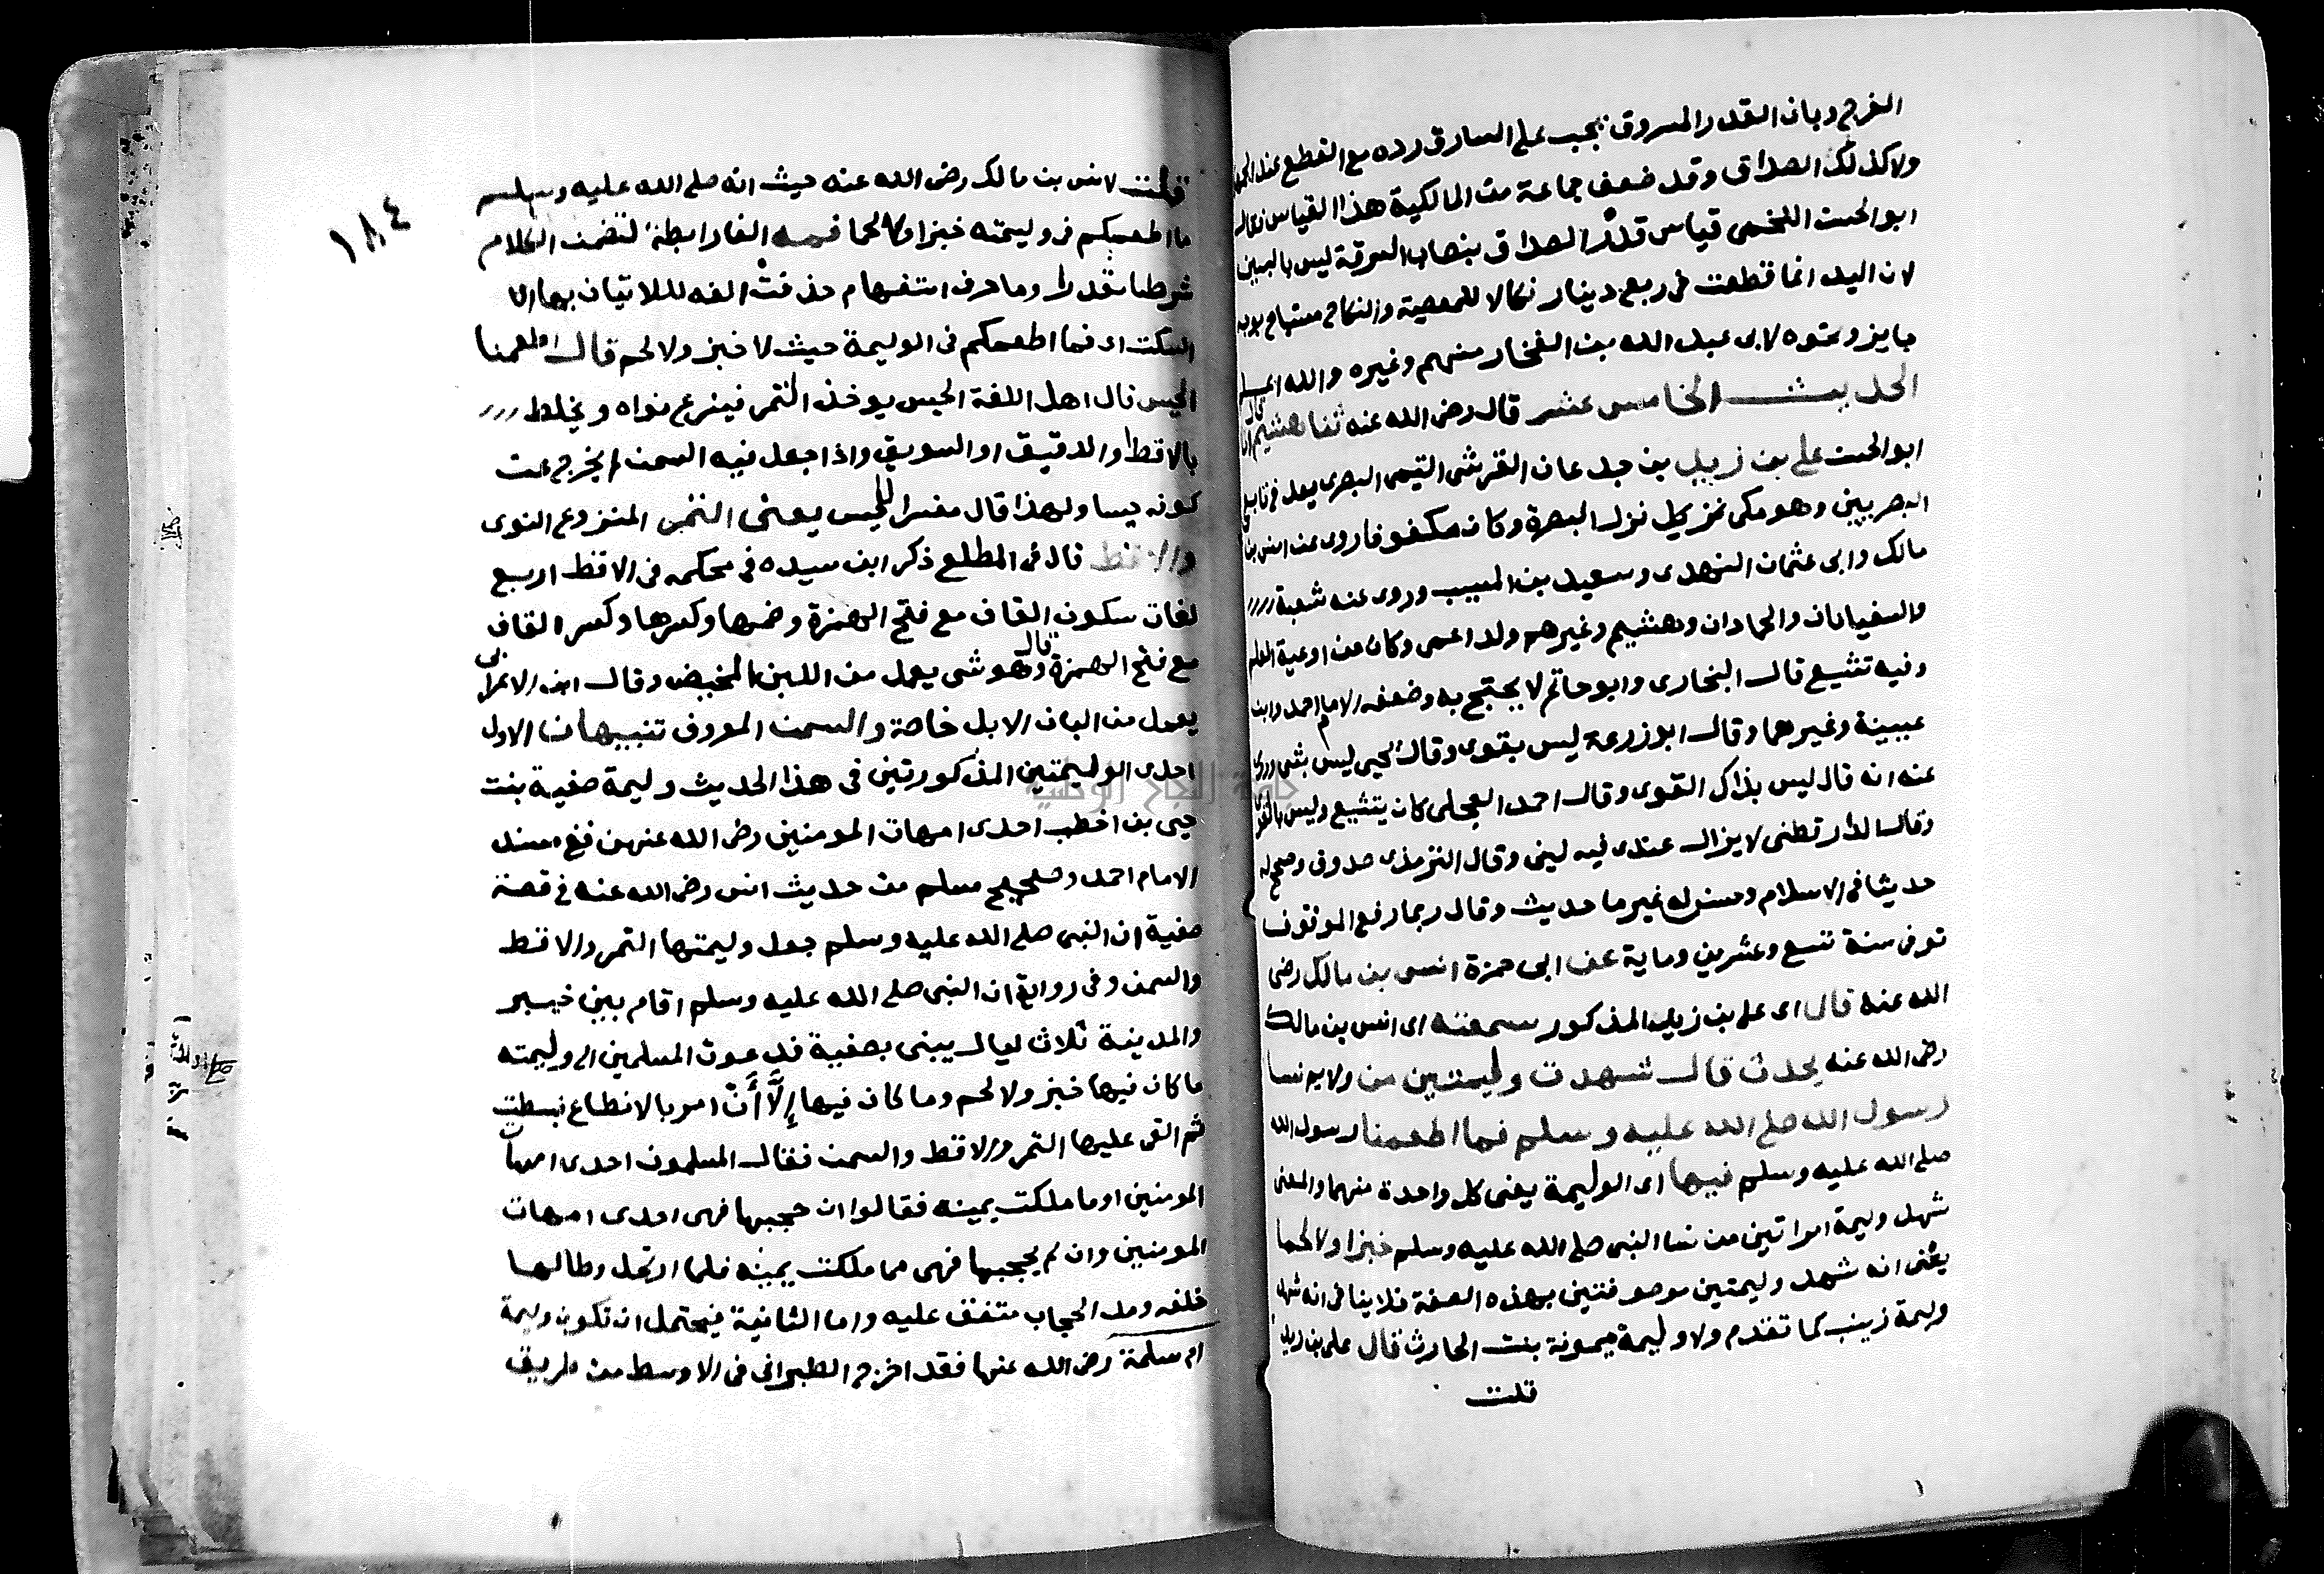 الفرج وبان القدر المسروق يجب على السارق رده مع القطع عند الجمهور
ولا كذلك الصداق وقد ضعف جماعة من المالكية هذا القياس فقال
ابو الحسن اللخمى قياس قدر الصداق بنصاب السرقة ليس بالبين
لان اليد انما قطعت فى ربع دينار نكالا للمعصية والنكاح مستباح بوجه
جايز ونحوه لابى عبد الله بن الفخار منهم وغيره والله اعلم
الحديث الخامس عشر قال رضى الله عنه ثنا هشيم قال انا
ابو الحسن على بن زيد بن جدعان القرشى التيمى البصرى يعد فى تابعى
البصريين وهو مكى نزيل نزل البصرة وكان مكفوفا روى عن انس بن
مالك وابى عثمان النهدى وسعيد بن المسيب وروى عنه شعبة
والسفيانان والحمادان وهشيم وغيرهم ولد اعمى وكان من اوعية العلم
وفيه تشيع قال البخارى وابو حاتم لا يحتج به وضعفه الامام احمد وابن
عيينة وغيرهما وقال ابو زرعة ليس بقوى وقال يحيى ليس بشى وروى
عنه انه قال ليس بذاك القوى وقال احمد العجلى كان يتشيع وليس بالقوى
وقال الدارقطنى لا يزال عندى فيه لين وقال الترمذى صدوق وصحح له
حديثا فى الاسلام وحسن له غير ما حديث وقال ربما رفع الموقوف
توفى سنة تسع وعشرين وماية عن ابى حمزة انس بن مالك رضى
الله عنه قال اى على بن زيد المذكور سمعته اى انس بن مالك
رضى الله عنه يحدث قال شهدت وليمتين من ولايم نسا
رسول الله صلى الله عليه وسلم فما اطعمنا رسول الله
صلى الله عليه وسلم فيها اى الوليمة يعنى كل واحدة منهما والمعنى
شهد وليمة امراتين من نسا النبى صلى الله عليه وسلم خبزا ولا لحما
يعنى انه شهد وليمتين موصوفتين بهذه الصفة فلا ينافى انه شهد
وليمة زينب كما تقدم ولا وليمة ميمونة بنت الحارث قال على بن زيد
قلت
١٨٤
قلت لانس بن مالك رضى الله عنه حيث انه صلى الله عليه وسلم
ما اطعمكم فى وليمته خبزا ولا لحما فمه الفا رابطة لتضمن الكلام
شرطا مقدرا وما حرف استفهام حذفت الفه للاتيان بهاء
السكت اى فما اطعمكم فى الوليمة حيث لا خبز ولا لحم قال اطعمنا
الحيس قال اهل اللغة الحيس يوخذ التمر فينزع نواه ويخلط
بالاقط والدقيق او السويق واذا جعل فيه السمن لم يخرج عن
كونه حيسا ولهذا قال مفسرا للحيس يعنى التمر المنزوع النوى
والاقط قال فى المطلع ذكر ابن سيده فى محكمه فى الاقط اربع
لغات سكون القاف مع فتح الهمزة وضمها وكسرها وكسر القاف
مع فتح الهمزة قال وهو شى يعمل من اللبن المخيض وقال ابن الاعرابى
يعمل من البان الابل خاصة والسمن المعروف تنبيهان الاول
احدى الوليمتين المذكورتين فى هذا الحديث وليمة صفية بنت
حيى بن اخطب احدى امهات المومنين رضى الله عنهن ففى مسند
الامام احمد وصحيح مسلم من حديث انس رضى الله عنه فى قصة
صفية ان النبى صلى الله عليه وسلم جعل وليمتها التمر والاقط
والسمن وفى رواية ان النبى صلى الله عليه وسلم اقام بين خيبر
والمدينة ثلاث ليال يبنى بصفية فدعوت المسلمين الى وليمته
ما كان فيها خبز ولا لحم وما كان فيها إلا أن امر بالانطاع فبسطت
ثم القى عليها التمر والاقط والسمن فقال المسلمون احدى امهات
المومنين او ما ملكت يمينه فقالوا ان حجبها فهى احدى امهات
المومنين وان لم يحجبها فهى مما ملكت يمينه فلما ارتحل وطا لها
خلفه ومد الحجاب متفق عليه واما الثانية فيحتمل ان تكون وليمة
ام سلمة رضى الله عنها فقد اخرج الطبرانى فى الاوسط من طريق
جامعة النجاح الوطنية